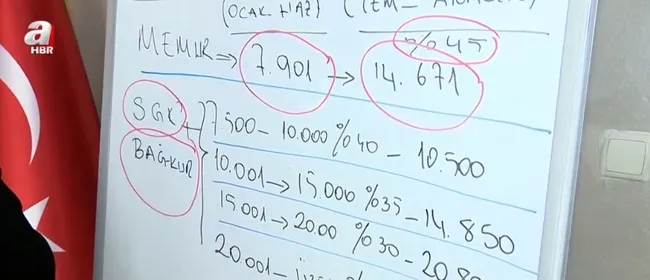 a
HBR
(OCAK
% 45
MEMUR → 7.901 → 14.671
SGK
BAĞ-KUR
7500 – 10.000 %40 – 10.500
10.001 → 15.000 %35 – 14.850
15.001 → 20.00 %30 – 20.8
20.001 –